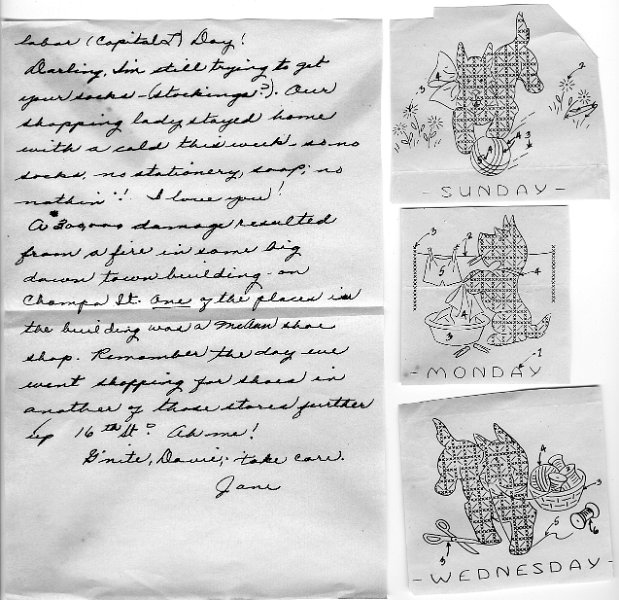 labor (Capital L) Day!
Darling, I'm still trying to get
your socks - (stockings?). Our
shopping lady stayed home
with a cold this week - so no
socks, no stationery, soap; no
nothin'! I love you!
A $30,000 damage resulted
from a fire in some big
down town building - on
Champa St. One of the places in
the building was a McAnn shoe
shop. Remember the day we
went shopping for shoes in
another of those stores further
up 16th St? Ah me!
G'nite, Davie, - take care.
Jane
3
4
2
5
4
3
- SUNDAY -
3
2
5
4
4
3
1
MONDAY
4
3
5
6
3
- WEDNESDAY -